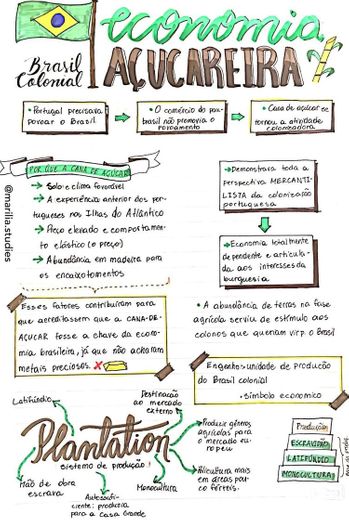 economia
Brasil
Colonial
AÇUCAREIRA
•Portugal precisava
povoar o Brasil
•O comércio do pau-
brasil não promovia o
povoamento
•Cana de açúcar se
tornou a atividade
colonizadora
POR QUE A CANA DE AÇÚCAR
→ Solo e clima favorável
→ A experiência anterior dos por-
tugueses nas Ilhas do Atlântico
→ Preço elevado e comportamen-
to elástico (o preço)
→ Abundância em madeira para
os encaixotamentos
→Demonstrava toda a
perspectiva MERCANTI-
LISTA da colonização
portuguesa
→Economia totalmente
dependente e articula-
da aos interesses da
burguesia
@marilia.studies
Esses fatores contribuíram para
que acreditassem que a CANA-DE-
AÇUCAR fosse a chave da econo-
mia brasileira, já que não acharam
metais preciosos.
• A abundância de terras na fase
agrícola serviu de estímulo aos
colonos que queriam vir p. o Brasil
Engenho: unidade de produção
do Brasil colonial
•símbolo econômico
Latifúndio
Destinação
ao mercado
externo
Plantation
sistema de produção
Produzir gêneros
agrícolas para o
mercado eu-
ropeu
Mão de obra
escrava
Autossufi-
ciente: produzia
para a Casa Grande
Monocultura
em áreas pou-
co férteis.
Produção
ESCRAVIDÃO
LATIFÚNDIO
MONOCULTURA